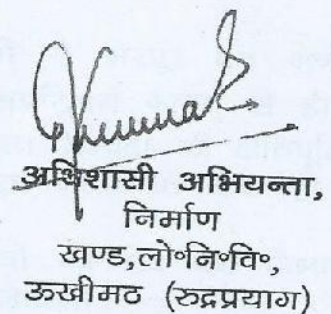 अधिशासी अभियन्ता,
निर्माण
खण्ड,लो॰नि॰वि॰,
ऊखीमठ (रुद्रप्रयाग)